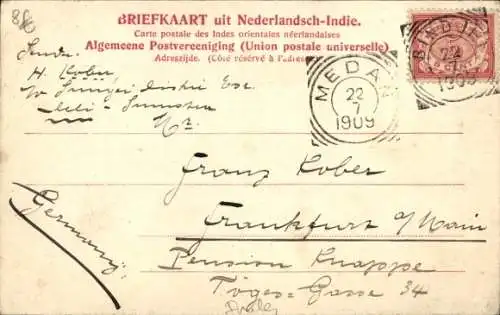 880
BRIEFKAART uit Nederlandsch-Indie.
Carte postale des Indes orientales néerlandaises
Algemeene Postvereeniging (Union postale universelle)
Adreszijde. (Côté réservé à l'adresse)
H. Kober
Deli-Sumatra
BINDJEI
22
7
1909
MEDAN
22
7
1909
Franz Kober
Frankfurt a/Main
Pension Knappe
Töges-Gasse 34
Germany